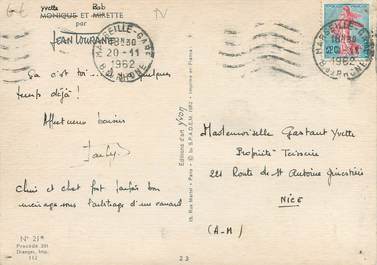 yvette Bab
MONIQUE ET MIRETTE
par
JEAN LOURANE
MARSEILLE-GARE
18H30
20-11
1962
B. DU RHONE
MARSEILLE-GARE
18H30
20-11
1962
B. DU RHONE
Ça c'est toi quelques
temps déjà !
Affectueux baisers
Chien et chat font parfois bon
ménage sous l'arbitrage d'un canard
N° 21
Procédé 301
Draeger, Imp.
112
23
Editions d'art yvon
15, Rue Martel - Paris - © by S.P.A.D.E.M. 1962 - Imprimé en France
Mademoiselle Gastant Yvette
Propriété Teisseire
221 Route de St Antoine Ginestière
NICE
(A-M)